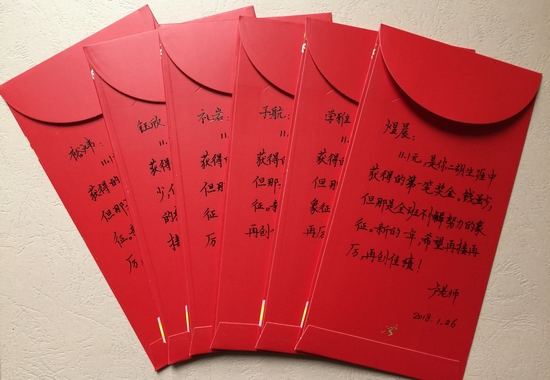 11.1
获得的
但那
征。
厉
钰欣:
11.
获得
少,但
的象
接再
礼岩:
11.
获得
但那
征。
厉
子航:
11.
获得的
但那
征。
再创
11.
获得
但那
象征
再厉
煜晨:
11.1元,是你二胡生涯中
获得的第一笔奖金。钱虽少,
但那是全班不懈努力的象
征。新的一年,希望再接再
厉,再创佳绩!
卢老师
2018.1.06